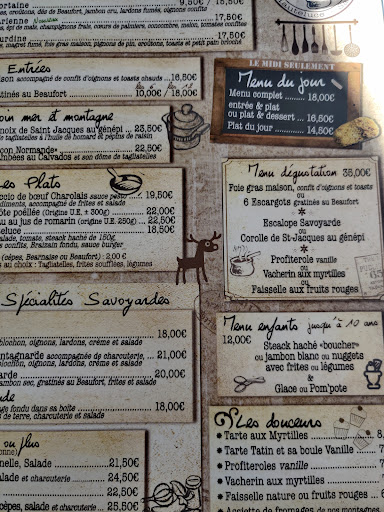 ortaine ........ 9,50€ / 18,50€
arienne Nouveau ........ / 18,50€
épi de maïs, champignons frais, cœurs de palmiers, concombre, melon, tomates confites
urdine ........ / 18,50€
Entrées
maison accompagné de confit d'oignons et toasts chauds ... 16,50€
gratinés au Beaufort ........ 10,00€ / 18,00€
mer et montagne
noix de Saint Jacques au génépi ... 23,50€
tagliatelles à l'huile de homard et pepins de raisin
çon Normande»
ambées au Calvados et son dôme de tagliatelles ... 22,50€
es Plats
de bœuf Charolais sauce pesto ... 19,50€
diments, accompagné de frites et salade
ôte poêlée (Origine U.E. : 300g) ... 22,00€
au jus de romarin (origine U.E. 250g) ... 22,50€
teluce ... 18,50€
salade, tomate, steack haché de 150g
confits, Bratzain fondu, sauce burger
(cèpes, Bearnaise ou Beaufort) : 2,00 €
au choix : Tagliatelles, frites soufflées, légumes
Spécialités Savoyardes
18,00€
blochon, oignons, lardons, crème et salade
ontagnarde accompagnée de charcuterie, ... 21,00€
blochon, oignons, lardons, crème et salade
arde ... 20,00€
jambon sec, gratinés au Beaufort, frites et salade
ude
age fondu dans sa boîte ... 18,00€
s de terre, charcuterie et salade
ou plus
nelle, Salade ... 21,50€
salade et charcuterie ... 24,50€
salade ... 22,50€
salade et charcuterie ... 25,50€
cèpes, salade et charcuterie
hauteluce
LE MIDI SEULEMENT
Menu du jour
Menu complet ........ 18,00€
entrée & plat
ou plat & dessert ... 16,50€
Plat du jour ........ 14,50€
Menu dégustation 38,00€
Foie gras maison, confit d'oignons et toasts
ou
6 Escargots gratinés au Beaufort
*
Escalope Savoyarde
ou
Corolle de St-Jacques au génépi
*
Profiterole vanille
ou
Vacherin aux myrtilles
ou
Faisselle aux fruits rouges
Menu enfants jusqu'à 10 ans
12,00€
Steack haché «boucher»
ou jambon blanc ou nuggets
avec frites ou légumes
&
Glace ou Pom'pote
Les douceurs
* Tarte aux Myrtilles
* Tarte Tatin et sa boule Vanille
* Profiteroles vanille
* Vacherin aux myrtilles
* Faisselle nature ou fruits rouges
* Assiette de fromages de nos montagnes